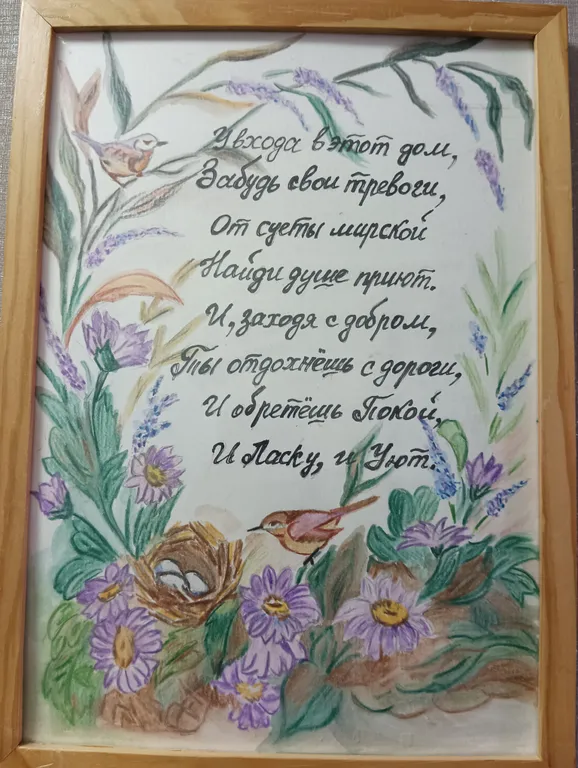 У входа в этот дом,
Забудь свои тревоги,
От суеты мирской
Найди душе приют.
И, заходя с добром,
Ты отдохнёшь с дороги,
И обретёшь Покой,
И Ласку, и Уют.